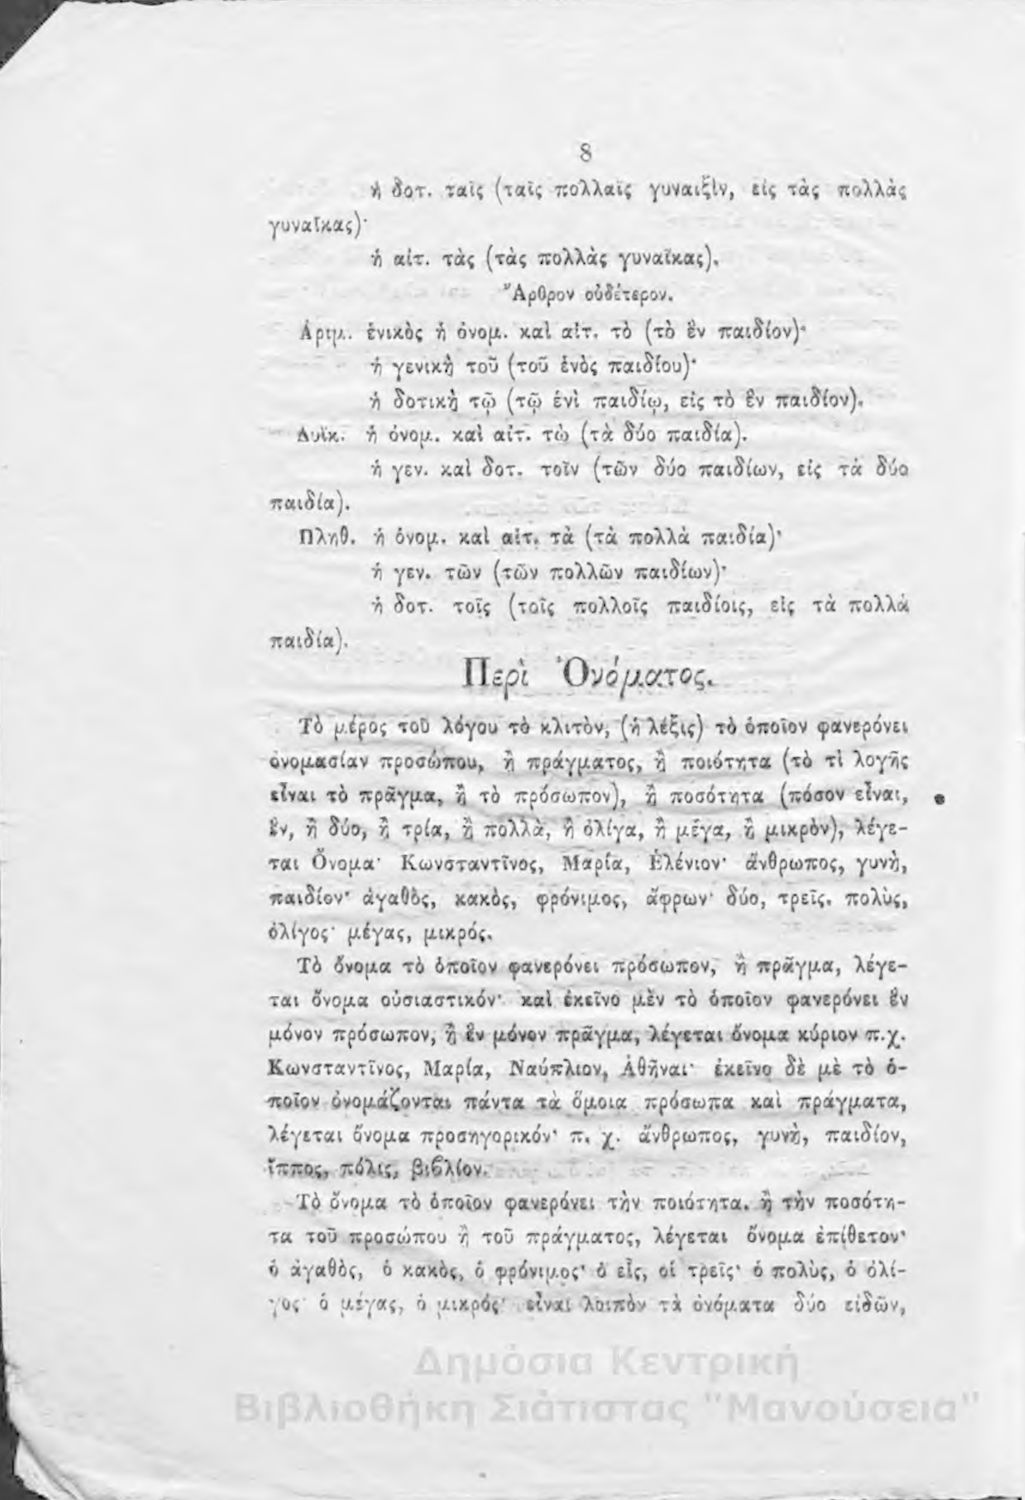 8
ἡ δοτ. ταῖς (ταῖς πολλαῖς γυναιξὶν, εἰς τὰς πολλὰς
γυναῖκας)·
ἡ αἰτ. τὰς (τὰς πολλὰς γυναῖκας).
Ἄρθρον οὐδέτερον.
Ἀριμ. ἑνικὸς ἡ ὀνομ. καὶ αἰτ. τὸ (τὸ ἓν παιδίον)·
ἡ γενικὴ τοῦ (τοῦ ἑνὸς παιδίου)·
ἡ δοτικὴ τῷ (τῷ ἑνὶ παιδίῳ, εἰς τὸ ἓν παιδίον).
Δυϊκ. ἡ ὀνομ. καὶ αἰτ. τὼ (τὰ δύο παιδία).
ἡ γεν. καὶ δοτ. τοῖν (τῶν δύο παιδίων, εἰς τὰ δύο
παιδία).
Πληθ. ἡ ὀνομ. καὶ αἰτ. τὰ (τὰ πολλὰ παιδία)·
ἡ γεν. τῶν (τῶν πολλῶν παιδίων)·
ἡ δοτ. τοῖς (τοῖς πολλοῖς παιδίοις, εἰς τὰ πολλὰ
παιδία).
Περὶ Ὀνόματος.
Τὸ μέρος τοῦ λόγου τὸ κλιτὸν, (ἡ λέξις) τὸ ὁποῖον φανερόνει
ὀνομασίαν προσώπου, ἢ πράγματος, ἢ ποιότητα (τὸ τὶ λογῆς
εἶναι τὸ πρᾶγμα, ἢ τὸ πρόσωπον), ἢ ποσότητα (πόσον εἶναι,
ἓν, ἢ δύο, ἢ τρία, ἢ πολλὰ, ἢ ὀλίγα, ἢ μέγα, ἢ μικρὸν), λέγε-
ται Ὄνομα· Κωνσταντῖνος, Μαρία, Ἑλένιον· ἄνθρωπος, γυνὴ,
παιδίον· ἀγαθὸς, κακὸς, φρόνιμος, ἄφρων· δύο, τρεῖς. πολὺς,
ὀλίγος· μέγας, μικρός.
Τὸ ὄνομα τὸ ὁποῖον φανερόνει πρόσωπον, ἢ πρᾶγμα, λέγε-
ται ὄνομα οὐσιαστικόν· καὶ ἐκεῖνο μὲν τὸ ὁποῖον φανερόνει ἓν
μόνον πρόσωπον, ἢ ἓν μόνον πρᾶγμα, λέγεται ὄνομα κύριον π.χ.
Κωνσταντῖνος, Μαρία, Ναύπλιον, Ἀθῆναι· ἐκεῖνο δὲ μὲ τὸ ὁ-
ποῖον ὀνομάζονται πάντα τὰ ὅμοια πρόσωπα καὶ πράγματα,
λέγεται ὄνομα προσηγορικόν· π. χ. ἄνθρωπος, γυνὴ, παιδίον,
ἵππος, πόλις, βιβλίον.
Τὸ ὄνομα τὸ ὁποῖον φανερόνει τὴν ποιότητα. ἢ τὴν ποσότη-
τα τοῦ προσώπου ἢ τοῦ πράγματος, λέγεται ὄνομα ἐπίθετον·
ὁ ἀγαθὸς, ὁ κακὸς, ὁ φρόνιμος· ὁ εἷς, οἱ τρεῖς· ὁ πολὺς, ὁ ὀλί-
γος· ὁ μέγας, ὁ μικρός· εἶναι λοιπὸν τὰ ὀνόματα δύο εἰδῶν,
Δημόσια Κεντρική
Βιβλιοθήκη Σιάτιστας "Μανούσεια"